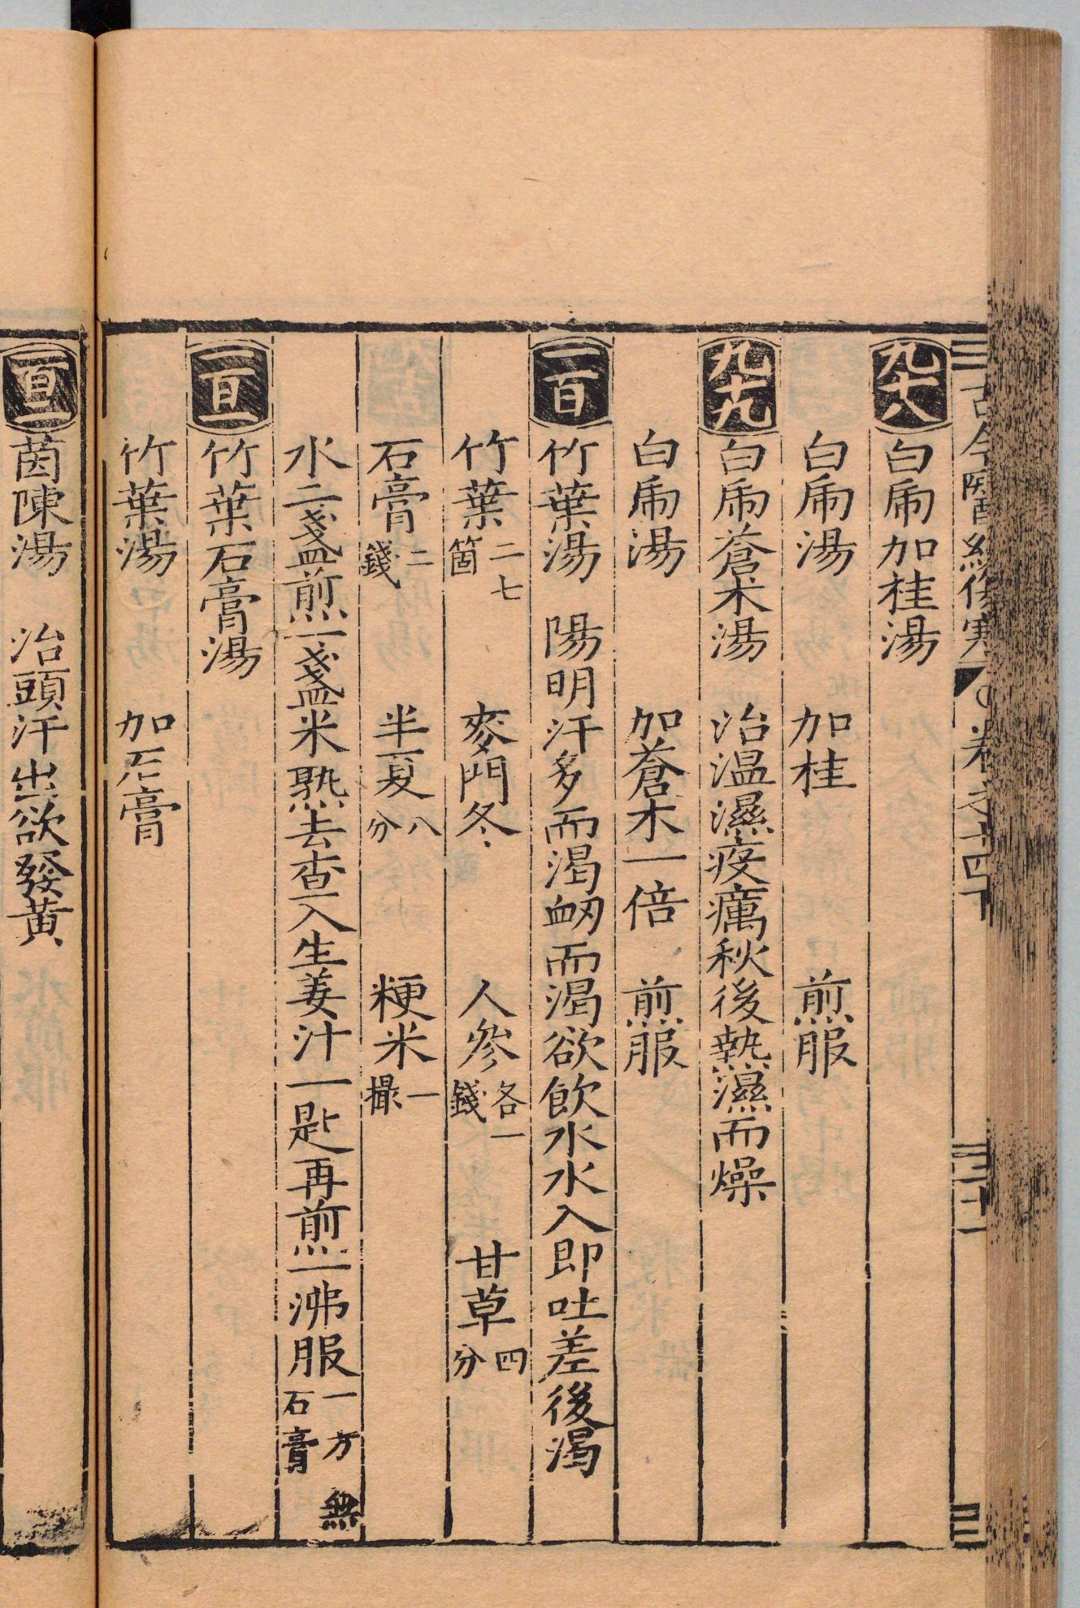 古今醫統傷寒 卷之十四下 三十一
九十八 白乕加桂湯
白乕湯 加桂 煎服
九十九 白乕蒼术湯 治温濕疫癘秋後熱濕而燥
白乕湯 加蒼术一倍 煎服
一百 竹葉湯 陽明汗多而渴衂而渴欲飲水水入即吐差後渴
竹葉二七箇 麥門冬 人參各一錢 甘草四分
石膏二錢 半夏八分 粳米一撮
水二盞煎一盞米熟去查入生姜汁一匙再煎一沸服一方無石膏
一百一 竹葉石膏湯
竹葉湯 加石膏
一百二 茵陳湯 治頭汗出欲發黃